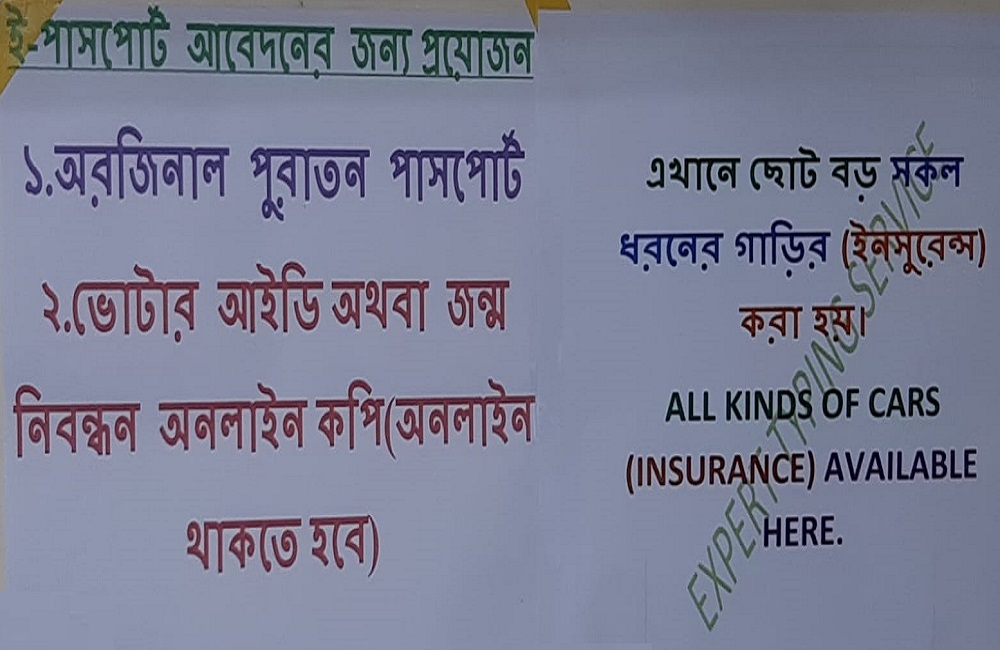 ই-পাসপোর্ট আবেদনের জন্য প্রয়োজন
১.অরজিনাল পুরাতন পাসপোর্ট
২.ভোটার আইডি অথবা জন্ম
নিবন্ধন অনলাইন কপি(অনলাইন
থাকতে হবে)
এখানে ছোট বড় সকল
ধরনের গাড়ির (ইনসুরেন্স)
করা হয়।
ALL KINDS OF CARS
(INSURANCE) AVAILABLE
HERE.
EXPERT TYPING SERVICE